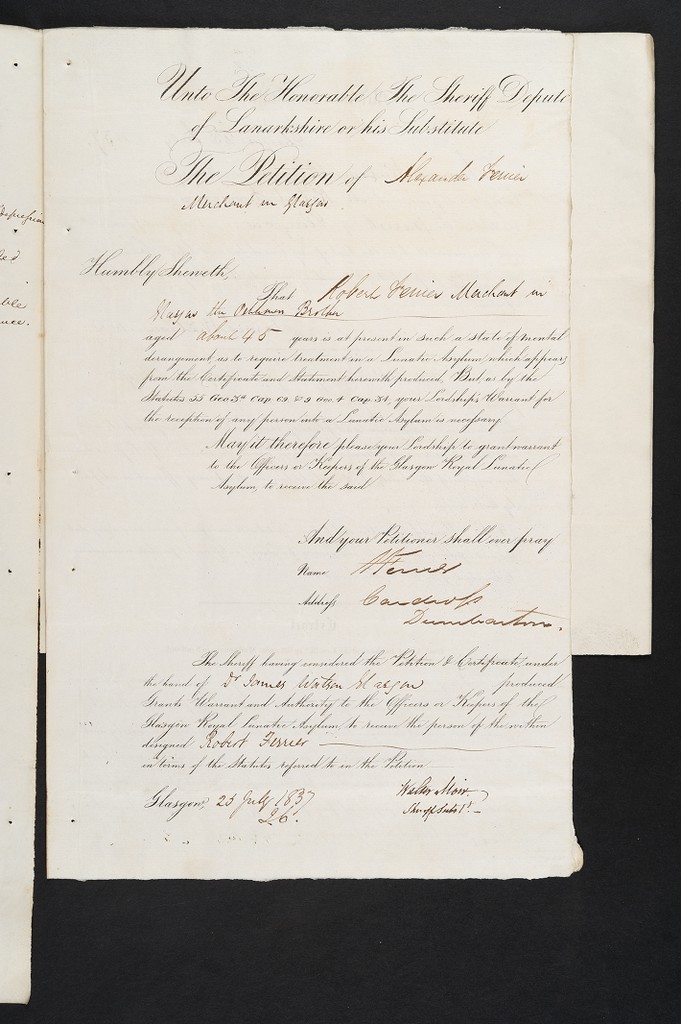 Unto The Honorable The Sheriff Depute
of Lanarkshire or his Substitute
The Petition of Alexander Ferrier
Merchant in Glasgow
Humbly Sheweth,
That Robert Ferrier Merchant in
Glasgow the Petitioners Brother
aged about 45 years is at present in such a state of mental
derangement as to require treatment in a Lunatic Asylum, which appears
from the Certificate and Statement herewith produced, But as by the
Statutes 55 Geo 3d Cap 69 & 9 Geo 4 Cap 34, your Lordship's Warrant for
the reception of any person into a Lunatic Asylum is necessary
May it therefore please your Lordship to grant warrant
to the Officers or Keepers of the Glasgow Royal Lunatic
Asylum, to receive the said
And your Petitioner shall ever pray
Name AFerrier
Address Cardross
Dumbarton.
The Sheriff having considered the Petition & Certificate, under
the hand of Dr James Watson Glasgow produced
Grants Warrant and Authority to the Officers or Keepers of the
Glasgow Royal Lunatic Asylum, to receive the person of the within
designed Robert Ferrier
in terms of the Statutes referred to in the Petition
Glasgow, 25 July 1837
26.
Walter Moir.
Sheriff Subst.